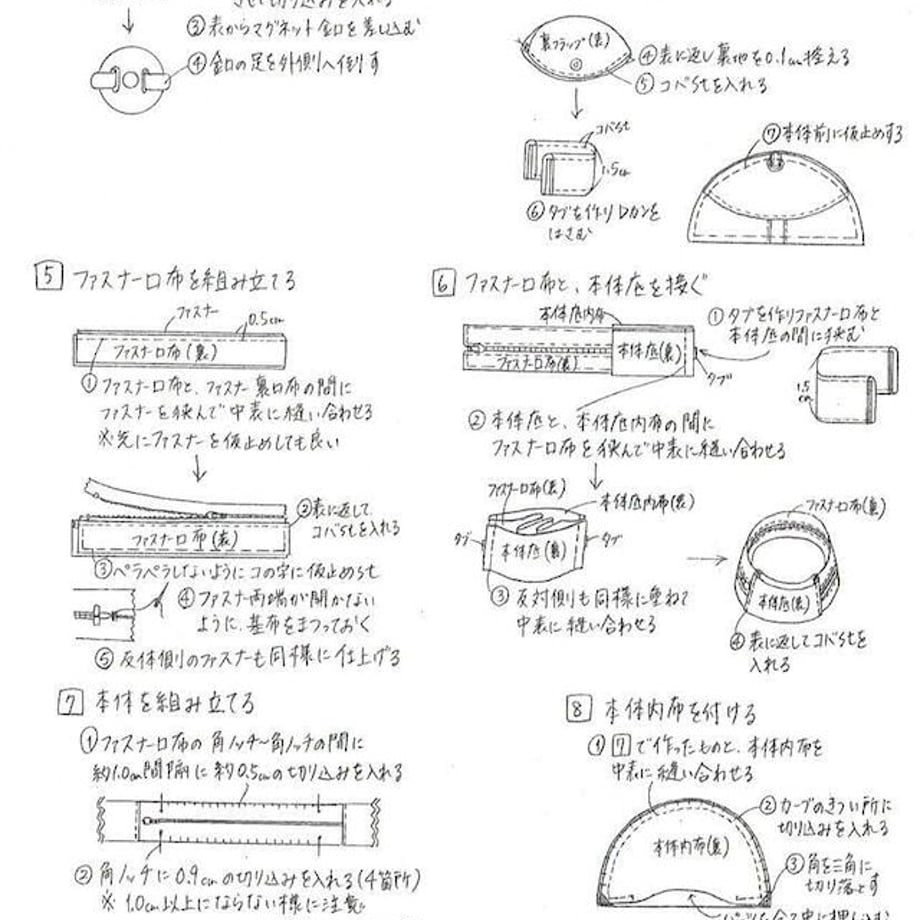 ③表からマグネット金口を差し込む
④金口の足を外側へ倒す
裏フラップ(表)
④表に返し裏地を0.1cm控える
⑤コバstを入れる
コバst
1.5cm
⑥タブを作りDカンを
はさむ
⑦本体前に仮止めする
5 ファスナー口布を組み立てる
ファスナー
0.5cm
ファスナー口布(裏)
①ファスナー口布と、ファスナー裏口布の間に
ファスナーを挟んで中表に縫い合わせる
※先にファスナーを仮止めしても良い
②表に返して
コバstを入れる
ファスナー口布(表)
③ペラペラしないようにコの字に仮止めst
④ファスナー両端が開かない
ように、基布をまつっておく
⑤反体側のファスナーも同様に仕上げる
6 ファスナー口布と、本体底を接ぐ
本体底内布
ファスナー口布(表)
本体底(裏)
タブ
①タブを作りファスナー口布と
本体底の間に挟む
1.5
cm
②本体底と、本体底内布の間に
ファスナー口布を挟んで中表に縫い合わせる
ファスナー口布(表)
本体底内布(表)
タブ
本体底(裏)
タブ
③反対側も同様に重ねて
中表に縫い合わせる
ファスナー口布(裏)
本体底(表)
④表に返してコバstを
入れる
7 本体を組み立てる
①ファスナー口布の角ノッチ〜角ノッチの間に
約1.0cm間隔に約0.5cmの切り込みを入れる
②角ノッチに0.9cmの切り込みを入れる(4箇所)
※1.0cm以上にならない様に注意
8 本体内布を付ける
①7で作ったものと、本体内布を
中表に縫い合わせる
本体内布(裏)
②カーブのきつい所に
切り込みを入れる
③角を三角に
切り落とす